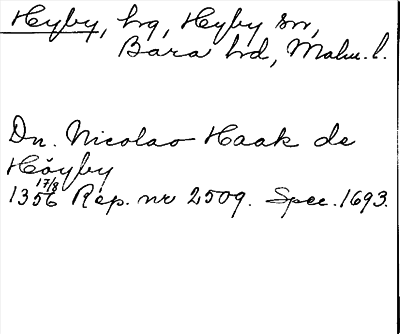 Hyby, hg, Hyby sn,
Bara hd, Malm. l.
Dn. Nicolao Haak de
Höyby
17/8
1356 Rep. nr 2509. Spec. 1693.